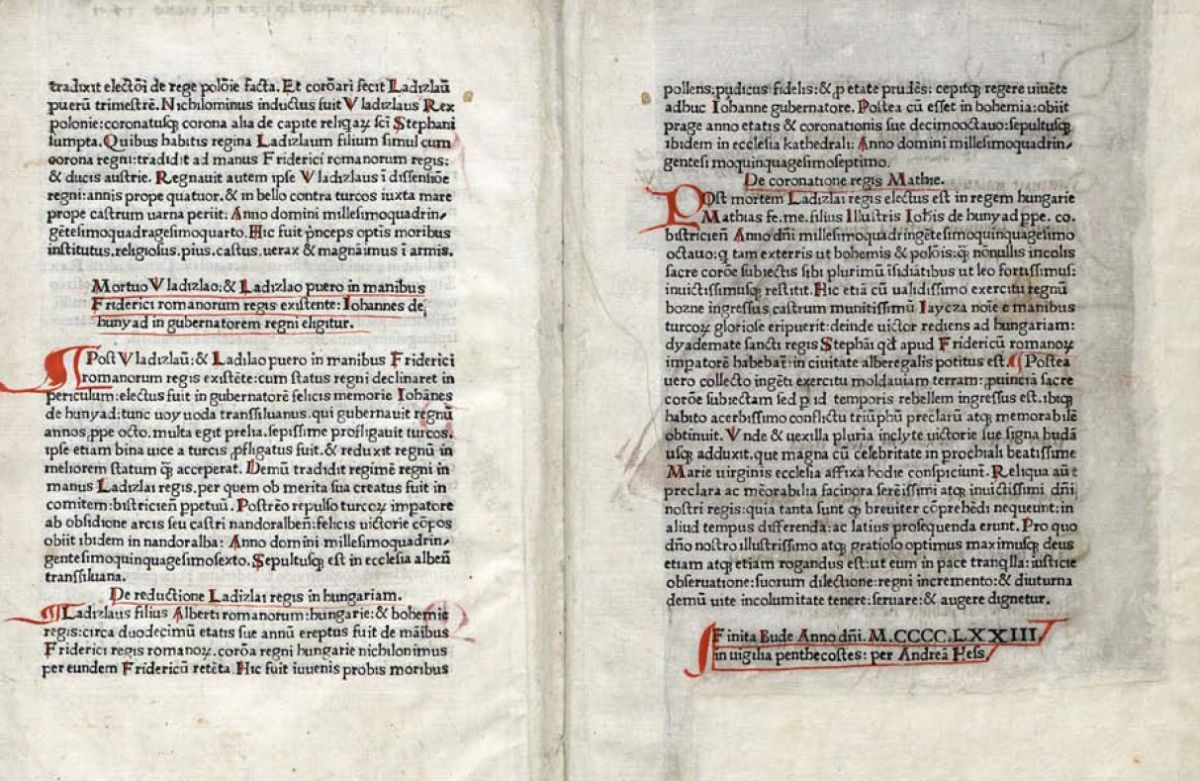 traduxit electõi de rege polõie facta. Et corõari fecit Ladizlaũ
puerũ trimestrẽ. Nichilominus inductus fuit Vladizlaus Rex
polonie: coronatusq; corona alia de capite reliqaꝝ scĩ Stephani
sumpta. Quibus habitis regina Ladizlaum filium simul cum
corona regni: tradidit ad manus Friderici romanorum regis:
& ducis austrie. Regnauit autem ipse Vladizlaus ĩ dissensiõe
regni: annis prope quatuor. & in bello contra turcos iuxta mare
prope castrum uarna periit: Anno domini millesimoquadrin-
gẽtesimoquadragesimoquarto. Hic fuit prĩceps optĩs moribus
institutus. religiosus. pius. castus. uerax & magnãimus ĩ armis.
Mortuo Vladizlao: & Ladizlao puero in manibus
Friderici romanorum regis existente: Iohannes de
hunyad in gubernatorem regni eligitur.
Post Vladizlaũ: & Ladislao puero in manibus Friderici
romanorum regis existẽte: cum status regni declinaret in
periculum: electus fuit in gubernatorẽ felicis memorie Iohãnes
de hunyad: tunc uoy uoda transsiluanus. qui gubernauit regnũ
annos ꝓpe octo. multa egit prelia. sepissime profligauit turcos.
ipse etiam bina uice a turcis ꝓfligatus fuit. & reduxit regnũ in
meliorem statum q̃ acceperat. Demũ tradidit regimẽ regni in
manus Ladizlai regis. per quem ob merita sua creatus fuit in
comitem: bistricieñ ppetuũ. Postrẽo repulso turcoꝝ impatore
ab obsidione arcis seu castri nandoralbeñ: felicis uictorie cõpos
obiit ibidem in nandoralba: Anno domini millesimoquadrin-
gentesimoquinquagesimosexto. Sepultusq; est in ecclesia albeñ
transsiluana.
De reductione Ladizlai regis in hungariam.
Ladizlaus filius Alberti romanorum: hungarie: & bohemie
regis: circa duodecimũ etatis sue annũ ereptus fuit de mãibus
Friderici regis romanoꝝ. corõa regni hungarie nichilonimus
per eundem Fridericũ retẽta. Hic fuit iuuenis probis moribus
pollens: pudicus fidelis: & ꝓ etate prudẽs: cepitq; regere uiuẽte
adhuc Iohanne gubernatore. Postea cũ esset in bohemia: obiit
prage anno etatis & coronationis sue decimooctauo: sepultusq;
ibidem in ecclesia kathedrali: Anno domini millesimoquadrin-
gentesimoquinquagesimoseptimo.
De coronatione regis Mathie.
POst mortem Ladizlai regis electus est in regem hungarie
Mathias fe. me. filius Illustris Iohĩs de hunyad ppe. co.
bistricieñ Anno dñi millesimoquadringẽtesimoquinquagesimo
octauo: q tam exterris ut bohemis & polõis: q̃ nõnullis incolis
sacre corõe subiectis sibi plurimũ ĩsidiatibus ut leo fortissimus:
inuictissimusq; restitit. Hic etiã cũ ualidissimo exercitu regnũ
bozne ingressus castrum munitissimũ Iaycza noĩe e manibus
turcoꝝ gloriose eripuerit: deinde uictor rediens ad hungariam:
dyademate sancti regis Stephãi qđ apud Fridericũ romanoꝝ
impatorẽ habebat: in ciuitate alberegalis potitus est. Postea
uero collecto ingẽti exercitu moldauiam terram: ꝓuinciã sacre
corõe subiectam sed p id temporis rebellem ingressus est. ibiq;
habito acerbissimo conflictu triũphũ preclarũ atq; memorabilẽ
obtinuit. Vnde & uexilla pluria inclyte uictorie sue signa budã
usq; adduxit. que magna cũ celebritate in ꝓochiali beatissime
Marie uirginis ecclesia affixa hodie conspiciunt. Reliqua aũt
preclara ac mẽorabilia facinora serẽissimi atq; inuictissimi dñi
nostri regis: quia tanta sunt q̃ breuiter cõprehẽdi nequeunt: in
aliud tempus differenda: ac latius prosequenda erunt. Pro quo
dño nostro illustrissimo atq; gratioso optimus maximusq; deus
etiam atq; etiam rogandus est: ut eum in pace tranqlla: iusticie
obseruatione: suorum dilectione: regni incremento: & diuturna
demũ uite incolumitate tenere: seruare: & augere dignetur.
Finita Bude Anno dñi. M.CCCC.LXXIII.
in uigilia penthecostes: per Andreã Hess.